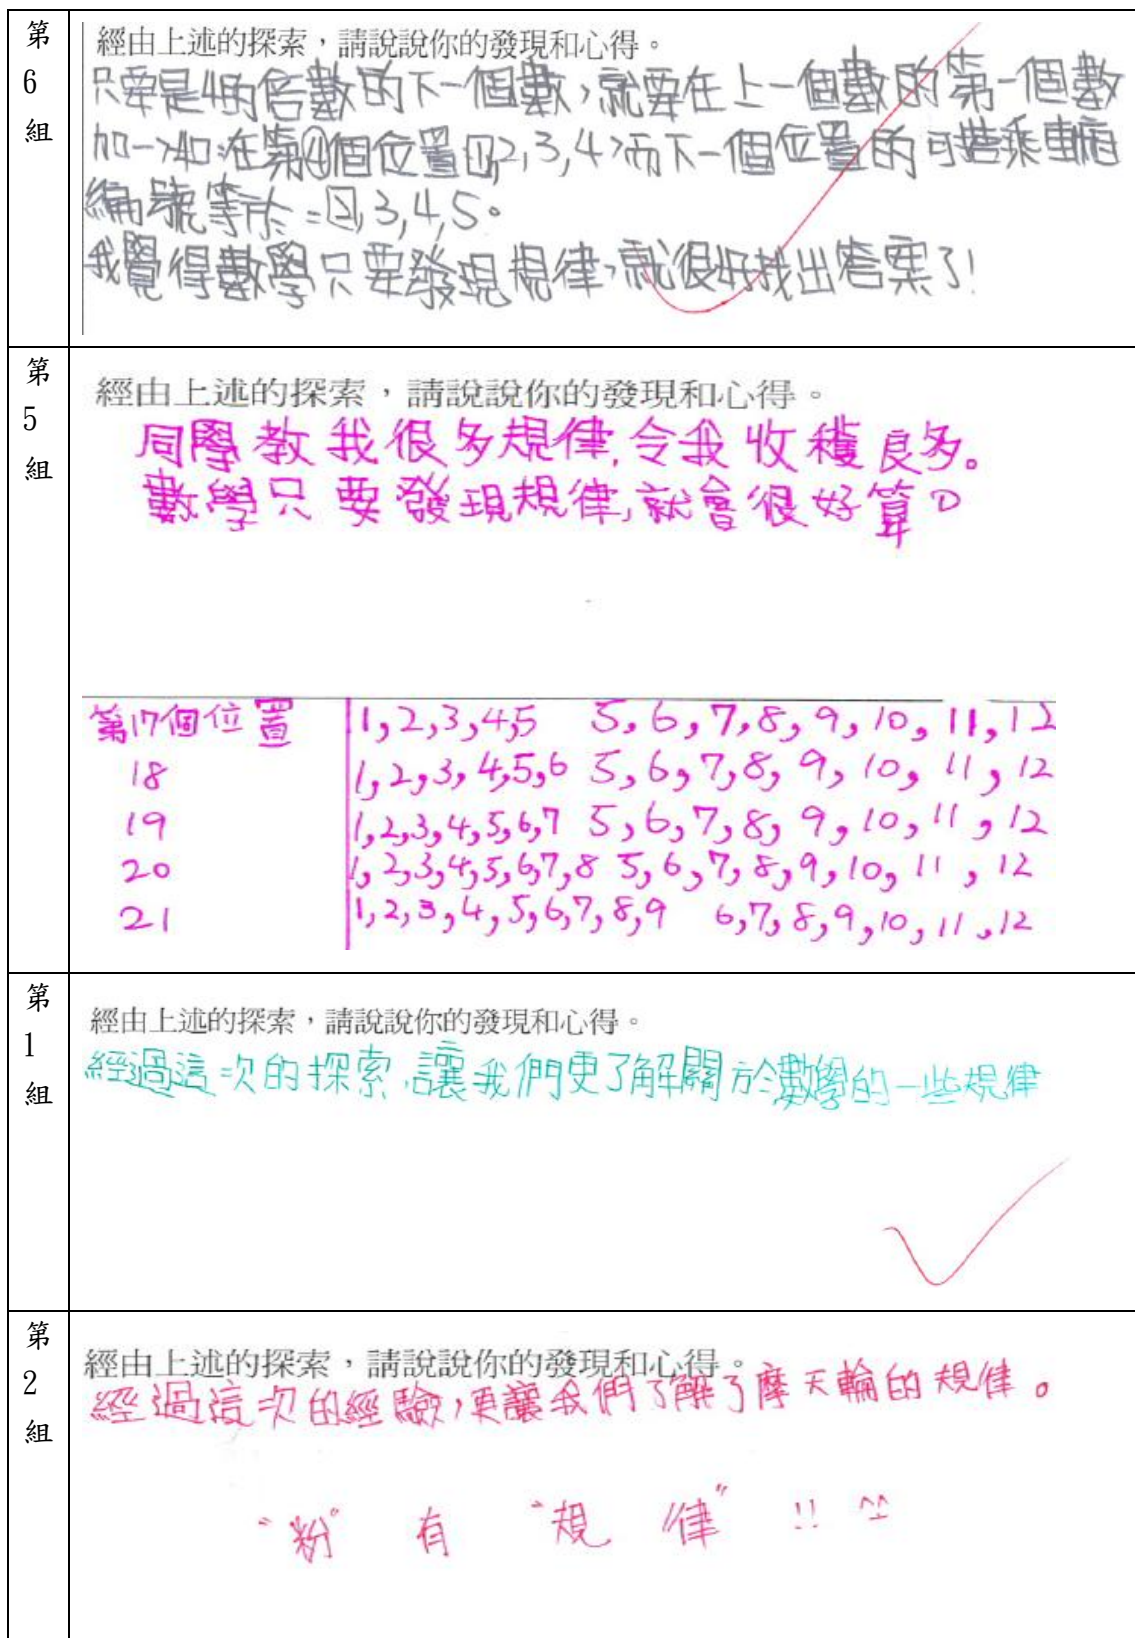 第
6
組
經由上述的探索,請說說你的發現和心得。
只要是4的倍數的下一個數,就要在上一個數的第一個數
加一,如:在第④個位置1,2,3,4,而下一個位置的可搭乘車廂
編號等於=2,3,4,5。
我覺得數學只要發現規律,就很好找出答案了!
第
5
組
經由上述的探索,請說說你的發現和心得。
同學教我很多規律,令我收穫良多。
數學只要發現規律,就會很好算。
第17個位置 1,2,3,4,5 5,6,7,8,9,10,11,12
18 1,2,3,4,5,6 5,6,7,8,9,10,11,12
19 1,2,3,4,5,6,7 5,6,7,8,9,10,11,12
20 1,2,3,4,5,6,7,8 5,6,7,8,9,10,11,12
21 1,2,3,4,5,6,7,8,9 6,7,8,9,10,11,12
第
1
組
經由上述的探索,請說說你的發現和心得。
經過這次的探索,讓我們更了解關於數學的一些規律
第
2
組
經由上述的探索,請說說你的發現和心得。
經過這次的經驗,更讓我們了解了摩天輪的規律。
"粉" 有 "規 律" !! ^^